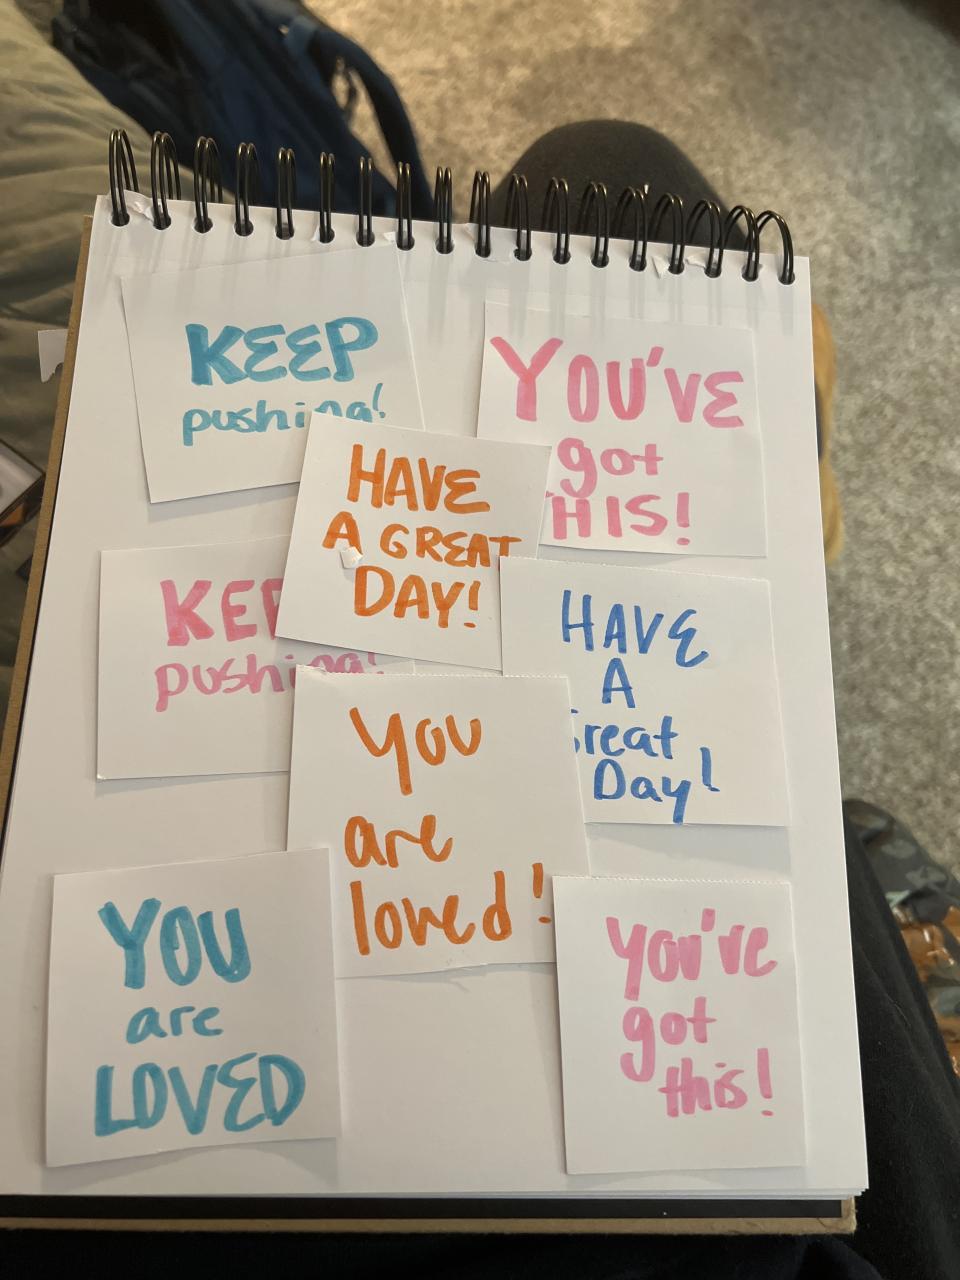 KEEP
pushing!
YOU'VE
got
THIS!
HAVE
A GREAT
DAY!
KEEP
pushing!
HAVE
A
Great
Day!
You
are
loved!
YOU
are
LOVED
you've
got
this!